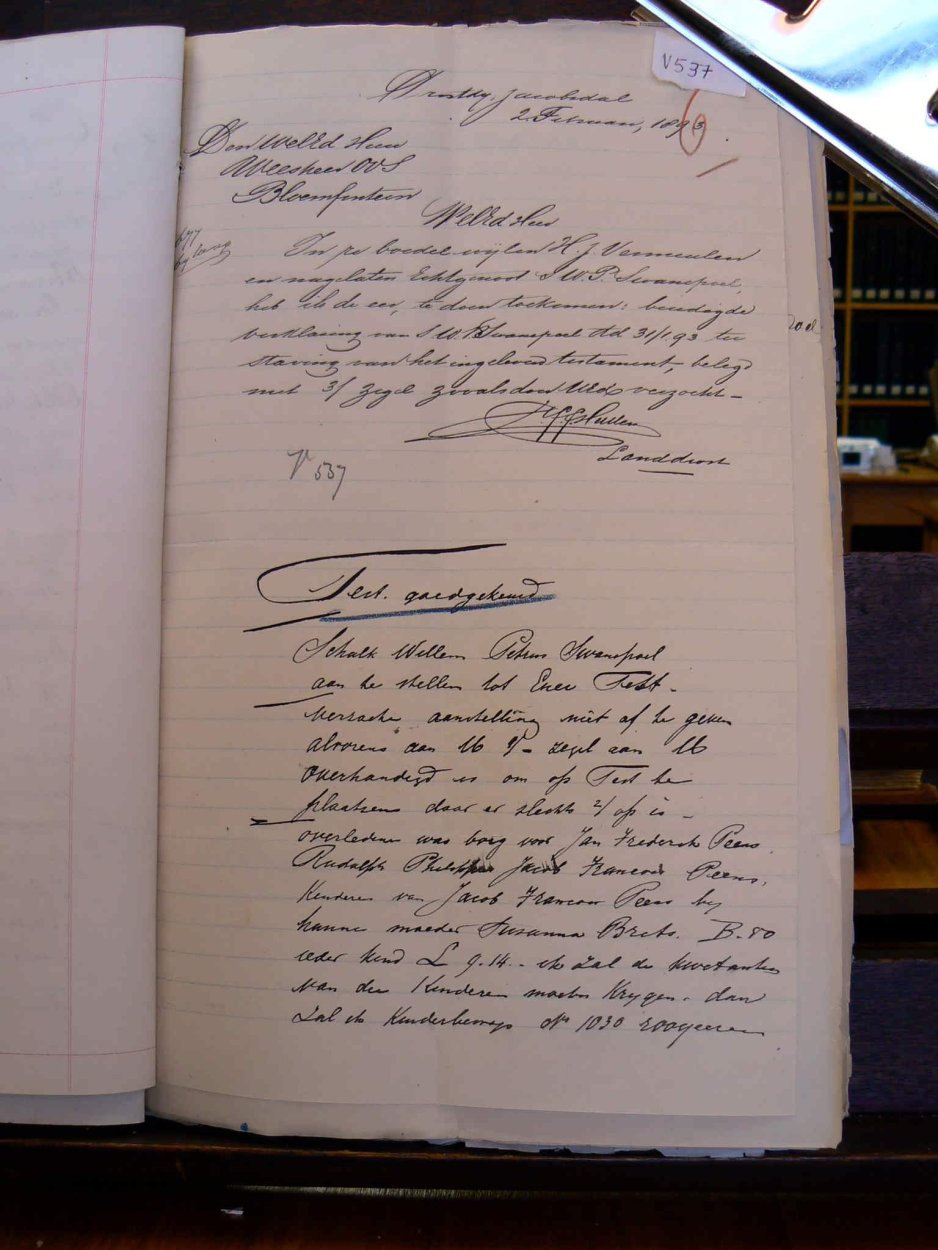 V537
Drostdy, Jacobsdal
2 Februari, 1893.
Den WelEd Heer
Weesheer OVS
Bloemfontein
WelEd Heer
In re boedel wijlen H. J. Vermeulen
en nagelaten Echtgenoot S. W. P. Swanepoel,
heb ik de eer, te doen toekomen: beeedigde
verklaring van S W P Swanepoel dd 31/1.93 ter
staving van het ingeleverd testament, belegd
met 3/ zegel zooals door UEd verzocht –
Landdrost
V 537
Test. goedgekeurd
Schalk Willem Petrus Swanepoel
aan te stellen tot Exec Test –
verzoeke aanstelling niet af te geven
alvorens aan M zegel aan M
overhandigd is om op Test te
plaatsen daar er slechts 2/ op is –
overledene was borg voor Jan Frederik Peens.
Rudolph Philippus Jacob Francois Peens,
Kinderen van Jacob Francois Peens by
hunne moeder Susanna Brits. B. 80
ieder kind £ 9.14 – ik zal de kwitanties
van die Kinderen moeten Krygen. dan
zal ik Kinderbewys No 1030 rooyeeren